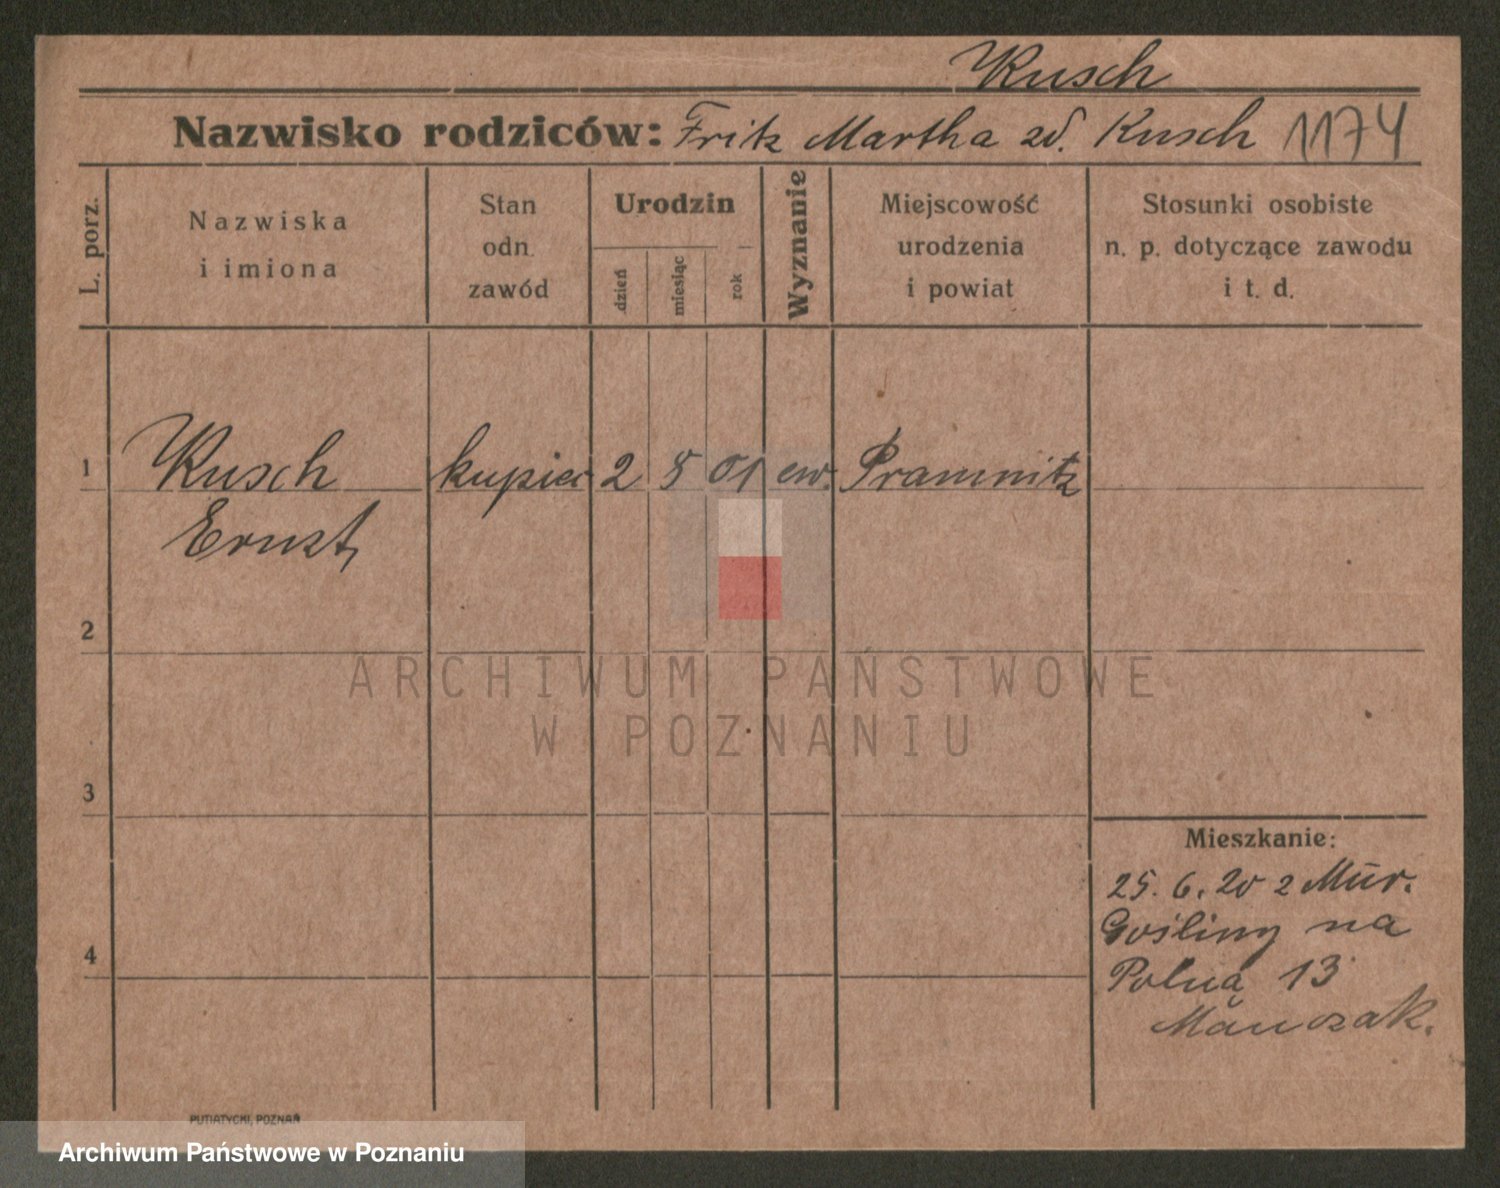 Kusch
Nazwisko rodziców: Fritz Martha zd. Kusch 1174
L. porz.
Nazwiska
i imiona
Stan
odn.
zawód
Urodzin
dzień
miesiąc
rok
Wyznanie
Miejscowość
urodzenia
i powiat
Stosunki osobiste
n. p. dotyczące zawodu
i t. d.
1 Kusch kupiec 2 8 01 ew. Pramnitz
Ernst
2
3
4
Mieszkanie:
25. 6. 20 z Mur.
Gośliny na
Polną 13
Mańczak.
PUTIATYCKI, POZNAŃ
ARCHIWUM PAŃSTWOWE
W POZNANIU
Archiwum Państwowe w Poznaniu